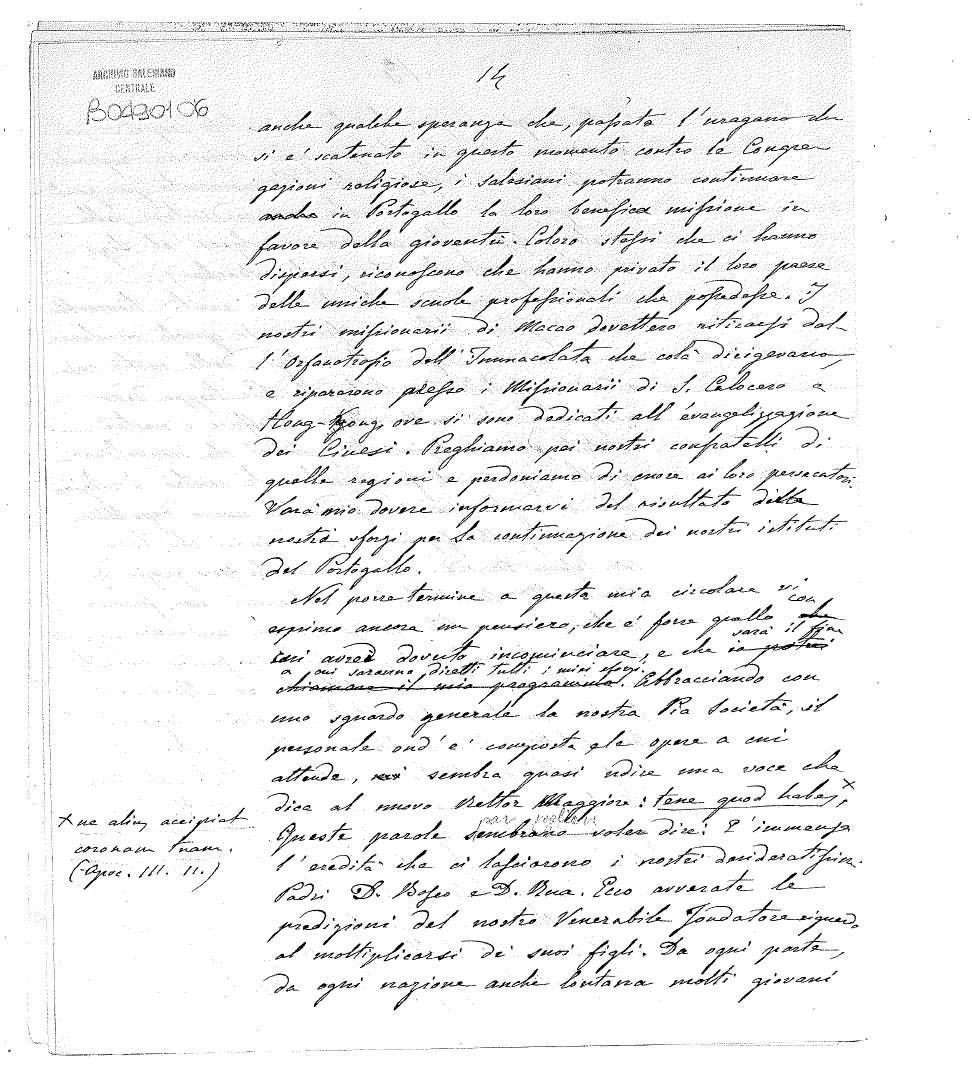 14
ARCHIVIO SALESIANO
CENTRALE
B0490106
anche qualche speranza che, passata l'uragano che
si è scatenato in questo momento contro le Congre-
gazioni religiose, i salesiani potranno continuare
anche in Portogallo la loro benefica missione in
favore della gioventù. Coloro stessi che ci hanno
dispersi, riconoscono che hanno privato il loro paese
delle uniche scuole professionali che possedesse. I
nostri missionarii di Macao dovettero ritirarsi dal-
l'Orfanotrofio dell'Immacolata che colà dirigevano,
e ripararono presso i Missionarii di S. Calocero a
Hong-Kong, ove si sono dedicati all'evangelizzazione
dei Cinesi. Preghiamo pei nostri confratelli di
quelle regioni e perdoniamo di cuore ai loro persecutori.
Sarà mio dovere informarvi del risultato delle
nostre sforzi per la continuazione dei nostri istituti
del Portogallo.
Nel porre termine a questa mia circolare vi
esprimo ancora un pensiero, che è forse quello che con
cui avrei dovuto incominciare, e che io potrei sarà il fine
a cui saranno diretti tutti i miei sforzi.
chiamare il mio programma. Abbracciando con
uno sguardo generale la nostra Pia Società, il
personale ond'è composta e le opere a cui
attende, mi sembra quasi udire una voce che
dica al nuovo Rettor Maggiore: tene quod habes x,
Queste parole sembrano voler dire: È immensa
par vogliano
l'eredità che ci lasciarono i nostri desideratissimi
Padri D. Bosco e D. Rua. Ecco avverate le
predizioni del nostro Venerabile Fondatore riguardo
al moltiplicarsi de' suoi figli. Da ogni parte,
da ogni nazione anche lontana molti giovani
x ne alius accipiat
coronam tuam.
(Apoc. III. II.)